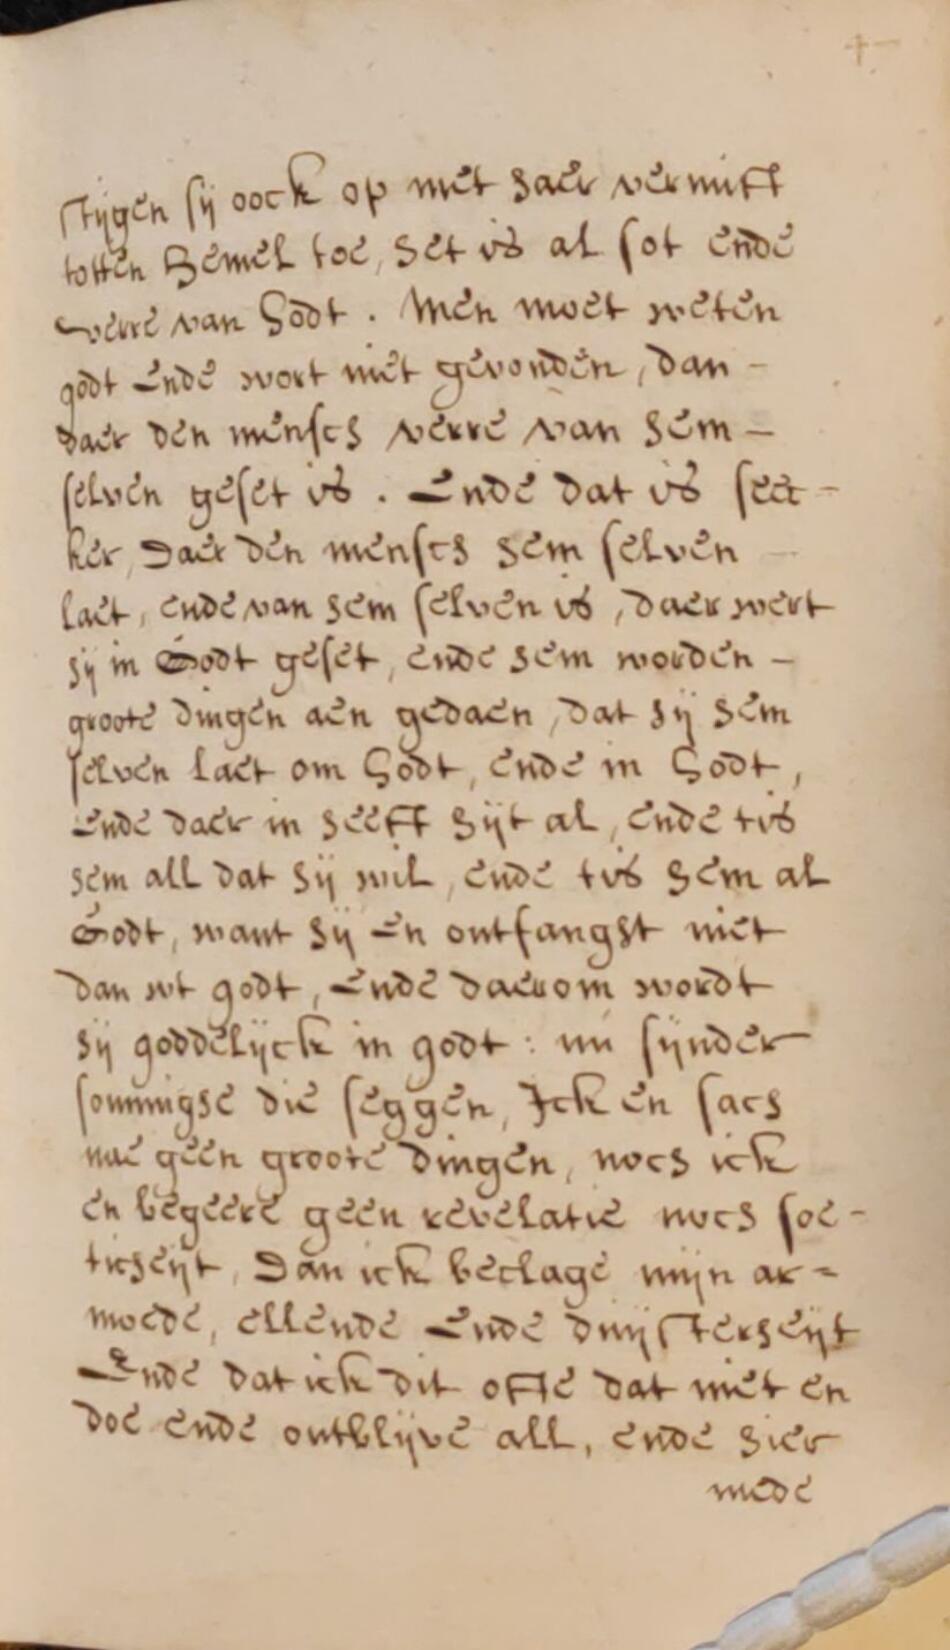 stijgen sij oock op met haer vernuft
totten hemel toe, het is al sot ende
verre van Godt. Men moet weten
godt ende wort niet gevonden, dan -
daer den mensch verre van hem -
selven geset is. Ende dat is sec -
ker, Daer den mensch hem selven
laet, ende van hem selven is, daer wert
hij in Godt geset, ende hem worden -
groote dingen aen gedaen, dat hij hem
selven laet om Godt, ende in Godt,
ende daer in heeft hijt al, ende tis
hem all dat hij wil, ende tis hem al
Godt, want hij en ontfanght niet
dan wt godt, ende daerom wordt
hij goddelijck in godt: nú sijnder
sommighe die seggen, Ick en sach
nae geen groote dingen, noch ick
en begeere geen revelatie noch soe -
ticheijt, Dan ick beclage mijn ar =
moede, ellende ende duijsterheijt
Ende dat ick dit ofte dat niet en
doe ende ontblijve all, ende hier
mede